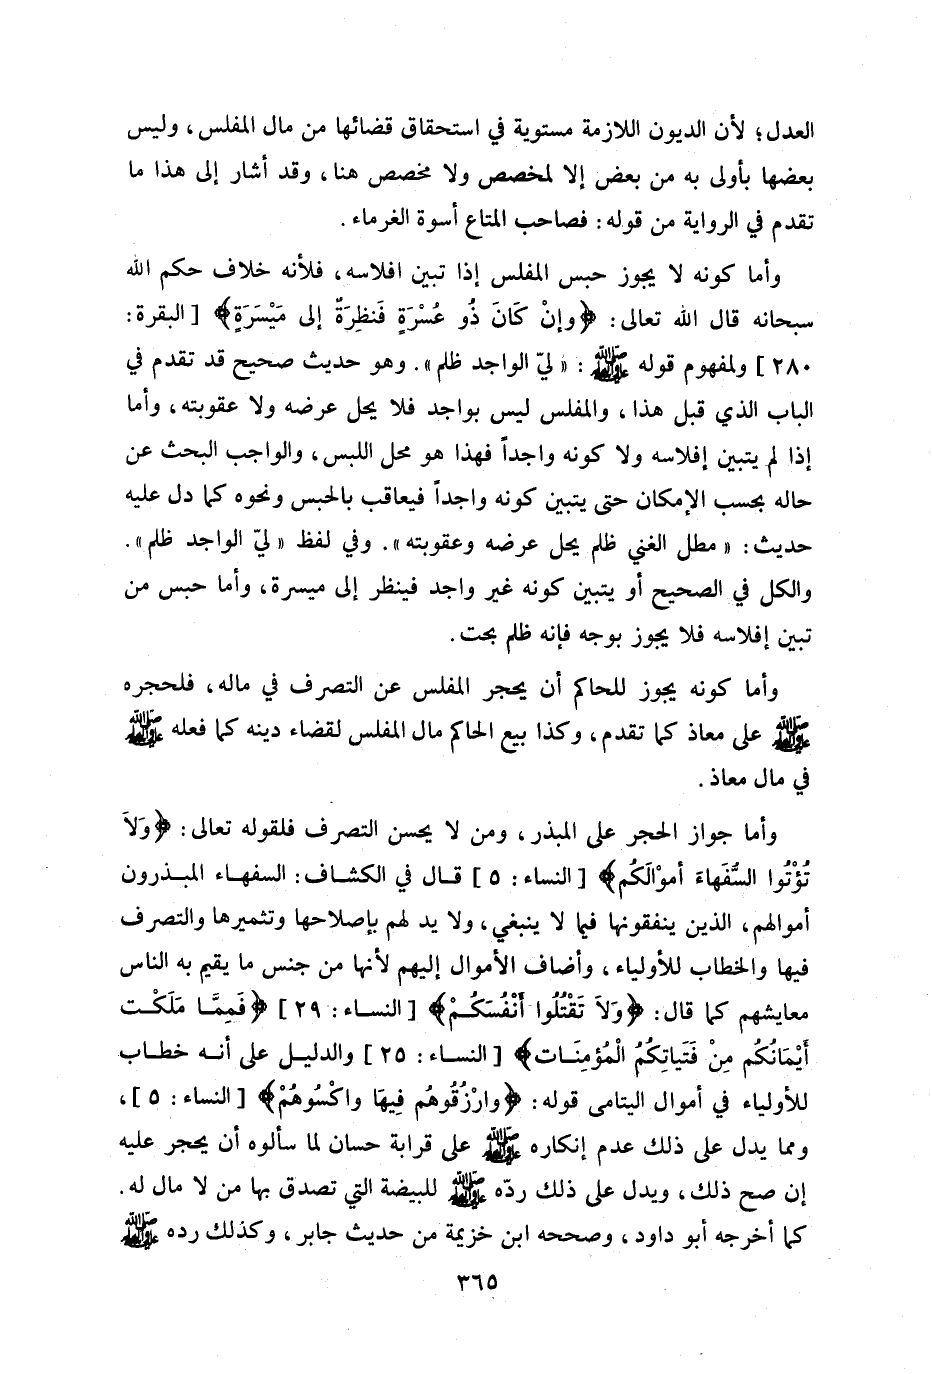 العدل؛ لأن الديون اللازمة مستوية في استحقاق قضائها من مال المفلس، وليس
بعضها بأولى به من بعض إلا لمخصص ولا مخصص هنا، وقد أشار إلى هذا ما
تقدم في الرواية من قوله: فصاحب المتاع أسوة الغرماء.
وأما كونه لا يجوز حبس المفلس إذا تبين افلاسه، فلأنه خلاف حكم الله
سبحانه قال الله تعالى: ﴿وإنْ كَانَ ذُو عُسْرَةٍ فَنظِرَةٌ إلى مَيْسَرَةٍ﴾ [البقرة:
٢٨٠] ولمفهوم قوله ﷺ: «ليّ الواجد ظلم». وهو حديث صحيح قد تقدم في
الباب الذي قبل هذا، والمفلس ليس بواجد فلا يحل عرضه ولا عقوبته، وأما
إذا لم يتبين إفلاسه ولا كونه واجداً فهذا هو محل اللبس، والواجب البحث عن
حاله بحسب الإمكان حتى يتبين كونه واجداً فيعاقب بالحبس ونحوه كما دل عليه
حديث: «مطل الغني ظلم يحل عرضه وعقوبته». وفي لفظ «ليّ الواجد ظلم».
والكل في الصحيح أو يتبين كونه غير واجد فينظر إلى ميسرة، وأما حبس من
تبين إفلاسه فلا يجوز بوجه فإنه ظلم بحت.
وأما كونه يجوز للحاكم أن يحجر المفلس عن التصرف في ماله، فلحجره
ﷺ على معاذ كما تقدم، وكذا بيع الحاكم مال المفلس لقضاء دينه كما فعله ﷺ
في مال معاذ.
وأما جواز الحجر على المبذر، ومن لا يحسن التصرف فلقوله تعالى: ﴿وَلاَ
تُؤْتُوا السُّفَهاءَ أموْالَكُم﴾ [النساء: ٥] قال في الكشاف: السفهاء المبذرون
أموالهم، الذين ينفقونها فيما لا ينبغي، ولا يد لهم بإصلاحها وتثميرها والتصرف
فيها والخطاب للأولياء، وأضاف الأموال إليهم لأنها من جنس ما يقيم به الناس
معايشهم كما قال: ﴿وَلاَ تَقْتُلُوا أَنْفُسَكُمْ﴾ [النساء: ٢٩] ﴿فَمِمَّا مَلَكْت
أَيْمَانُكُم مِنْ فَتَياتِكُمُ الْمُؤمِنَات﴾ [النساء: ٢٥] والدليل على أنه خطاب
للأولياء في أموال اليتامى قوله: ﴿وارْزُقُوهُم فِيهَا واكْسُوهُمْ﴾ [النساء: ٥]،
ومما يدل على ذلك عدم إنكاره ﷺ على قرابة حسان لما سألوه أن يحجر عليه
إن صح ذلك، ويدل على ذلك ردّه ﷺ للبيضة التي تصدق بها من لا مال له.
كما أخرجه أبو داود، وصححه ابن خزيمة من حديث جابر، وكذلك رده ﷺ
٣٦٥